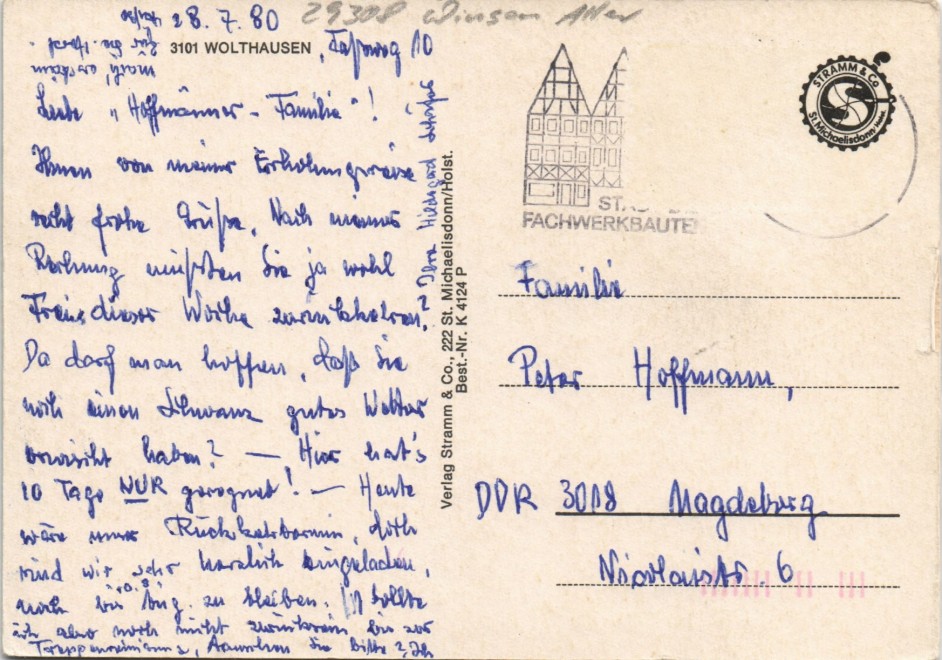 28.7.80 29308 Winsen Aller
3101 WOLTHAUSEN, Faßweg 10
Liebe "Hoffmänner-Familie"!
Ihnen von meiner Erholungsreise
recht frohe Grüße. Nach meiner
Rechnung müßten Sie ja wohl
Ende dieser Woche zurückkehren?
Da darf man hoffen, daß Sie
noch einen Schwanz gutes Wetter
erwischt haben? — Hier hat's
10 Tage NUR geregnet! — Heute
wäre unser Rückkehrtermin, doch
sind wir sehr herzlich eingeladen,
noch bis Aug. zu bleiben. Sollte
ich also noch nicht zurück sein bis zur
Treppenreinigung, machen Sie bitte? Ich
für Sie
Ihre Hildegard
Verlag Stramm & Co., 222 St. Michaelisdonn/Holst.
Best.-Nr. K 4124 P
FACHWERKBAUTE
STRAMM & Co
St. Michaelisdonn/Holst.
Familie
Peter Hoffmann,
DDR 3018 Magdeburg
Nicolaistr. 6